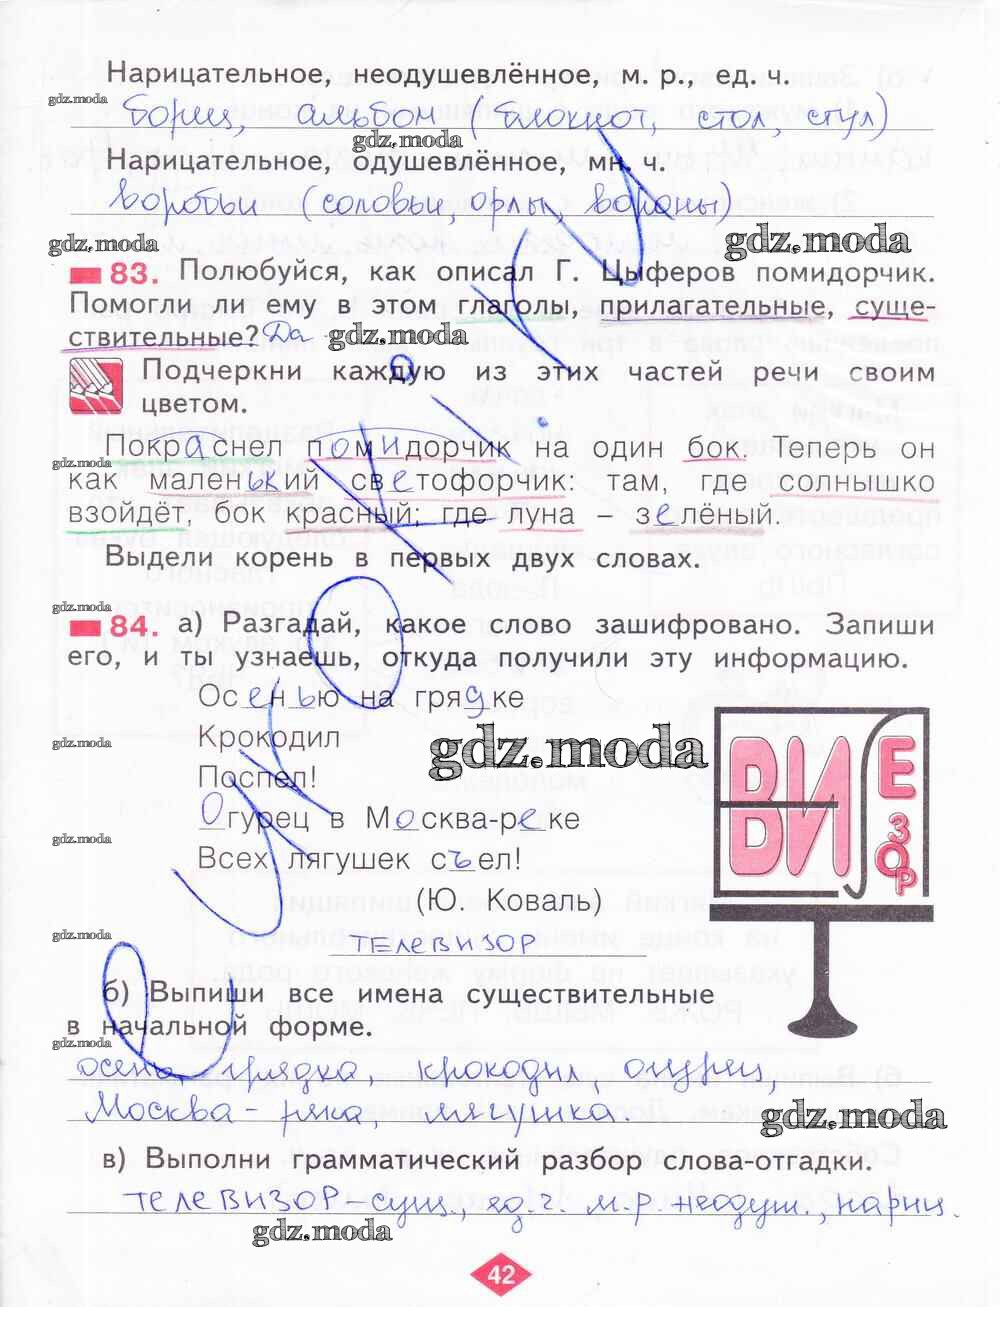 Нарицательное, неодушевлённое, м. р., ед. ч.
gdz.moda
борщ, альбом (блокнот, стол, стул)
gdz.moda
Нарицательное, одушевлённое, мн. ч.
воробьи (соловьи, орлы, вороны)
gdz.moda
gdz.moda
83. Полюбуйся, как описал Г. Цыферов помидорчик.
Помогли ли ему в этом глаголы, прилагательные, суще-
ствительные? Да
gdz.moda
Подчеркни каждую из этих частей речи своим
цветом.
Покраснел помидорчик на один бок. Теперь он
gdz.moda
как маленький светофорчик: там, где солнышко
взойдёт, бок красный; где луна – зелёный.
Выдели корень в первых двух словах.
gdz.moda
84. а) Разгадай, какое слово зашифровано. Запиши
его, и ты узнаешь, откуда получили эту информацию.
Осенью на грядке
Крокодил
gdz.moda
gdz.moda
Поспел!
Огурец в Москва-реке
gdz.moda
Всех лягушек съел!
(Ю. Коваль)
ВИ ВИ Е ЗОР
gdz.moda
ТЕЛЕВИЗОР
б) Выпиши все имена существительные
в начальной форме.
gdz.moda
осень, грядка, крокодил, огурец,
Москва-ряка, лягушка.
gdz.moda
в) Выполни грамматический разбор слова-отгадки.
ТЕЛЕВИЗОР – сущ., ед. ч. м. р. неодуш., нариц.
gdz.moda
42